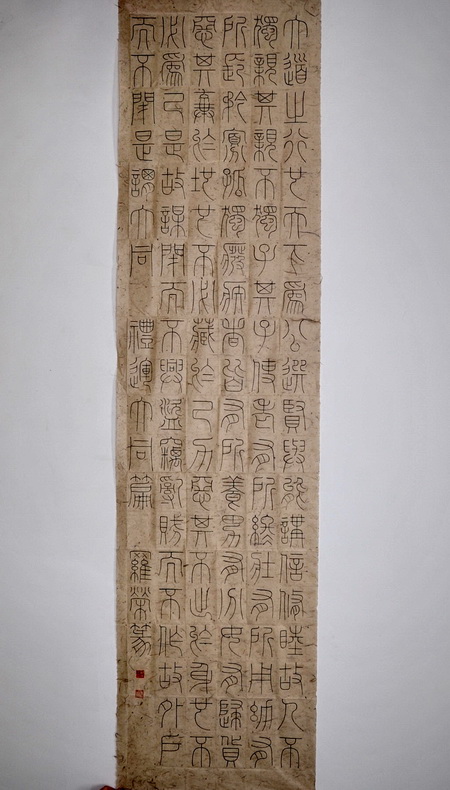 大道之行也天下爲公選賢與能講信修睦故人不
獨親其親不獨子其子使老有所終壯有所用幼有
所長矜寡孤獨廢疾者皆有所養男有分女有歸貨
惡其棄於地也不必藏於己力惡其不出於身也不
必爲己是故謀閉而不興盜竊亂賊而不作故外戶
而不閉是謂大同 禮運大同篇 羅榮篆